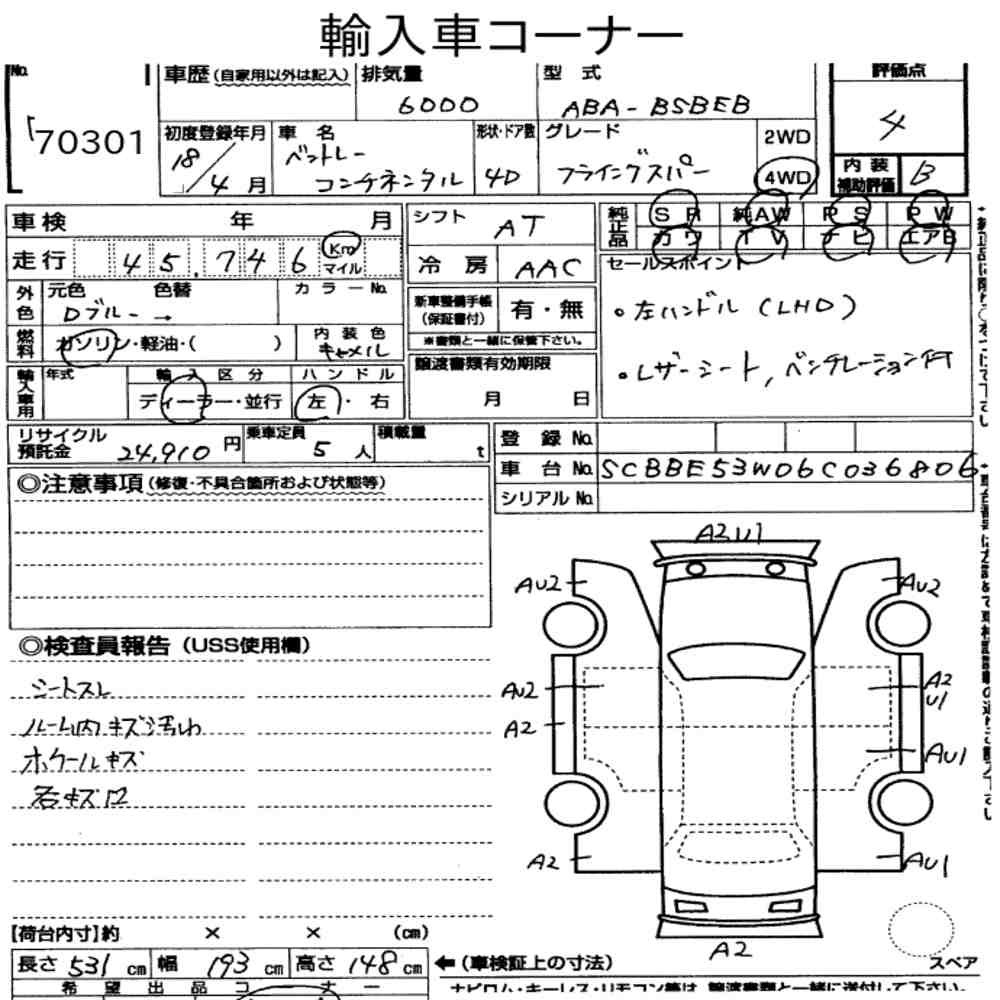 輸入車コーナー
No.
車歴(自家用以外は記入)
排気量
型式
評価点
6000
ABA-BSBEB
4
70301
初度登録年月
車名
形状・ドア数
グレード
2WD
18/4月
ベントレー
コンチネンタル
4D
フライングスパー
4WD
内装
補助評価
B
車検 年 月
シフト
AT
純正品
SR 純AW PS PW
カワ TV ナビ エアB
走行 45,746 Km マイル
冷房
AAC
セールスポイント
外色
元色 色替
カラーNo.
Dブルー →
新車整備手帳
(保証書付)
有・無
※書類と一緒に保管下さい。
・左ハンドル(LHD)
燃料
ガソリン・軽油・( )
内装色
キャメル
・レザーシート,ベンチレーション付
輸入車用
年式
輸入区分
ハンドル
譲渡書類有効期限
ディーラー・並行
左・右
月 日
リサイクル
預託金
24,910円
乗車定員
5人
積載量
t
登録No.
車台No.
SCBBE53W06C036806
シリアルNo.
◎注意事項(修復・不具合箇所および状態等)
A3U1
AU2
AU2
◎検査員報告(USS使用欄)
シートスレ
AU2
A2
U1
ルーム内キズ汚れ
A2
ホケールキズ
AU1
各キズ口
A2
AU1
【荷台内寸】約 × × (cm)
A2
長さ531cm
幅193cm
高さ148cm
←(車検証上の寸法)
スペア
希望出品コーナー
ナビロム・キーレス・リモコン等は、譲渡書類と一緒に送付して下さい。